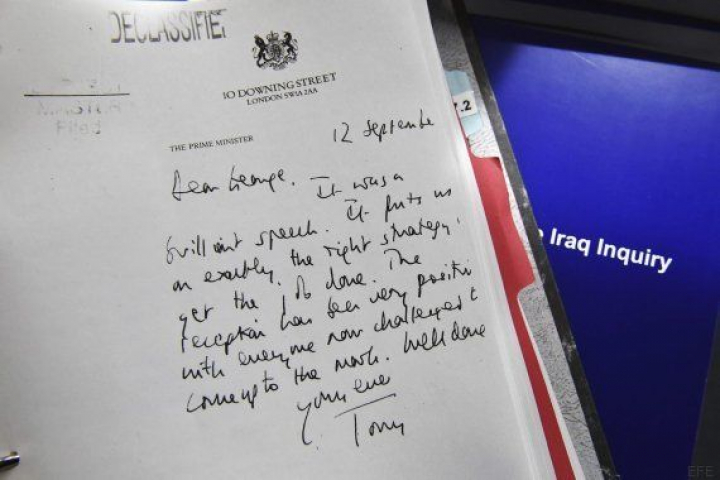 DECLASSIFIED
10 DOWNING STREET
LONDON SW1A 2AA
Filed
THE PRIME MINISTER
12 September
Dear George. It was a
brilliant speech. It puts us
on exactly the right strategy to
get the job done. The
reception has been very positive
with everyone now challenged to
come up to the mark. Well done
Yours ever
Tony
7.2
Iraq Inquiry
EFE